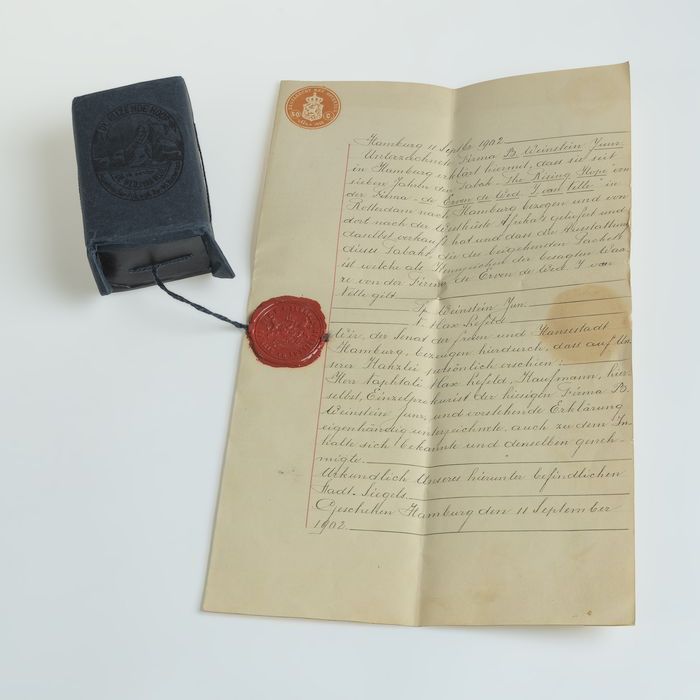 DE RIJZENDE HOOP
50 C
Hamburg 11 Septbr 1902
Unterzeichnete Firma B. Weinstein Junr.
in Hamburg erklärt hiermit, dass sie seit
sieben Jahren den Tabak "The Rising Hope" von
der Firma "de Erven de Wed. J. van Nelle" in
Rotterdam nach Hamburg bezogen und von
dort nach der Westküste Afrika's geliefert und
daselbst verkauft hat und dass die Ausstattung
dieses Tabaks, die des beigehenden Packets
ist welche als Kennzeichen der besagten Waa-
re von der Firma de Erven de Wed. J. van
Nelle gilt.
pp. Weinstein Jun.
Max Liefeld
Wir, der Senat der freien und Hansestadt
Hamburg, bezeugen hierdurch, dass auf Un-
serer Kanzlei persönlich erschien:
Herr Max Liefeld, Kaufmann, hier-
selbst, Einzelprokurist der hiesigen Firma B.
Weinstein junr, und vorstehende Erklärung
eigenhändig unterzeichnete, auch zu dem In-
halte sich bekannte und denselben geneh-
migte.
Urkundlich Unseres hierunter befindlichen
Stadt-Siegels.
Geschehen Hamburg den 11 September
1902.